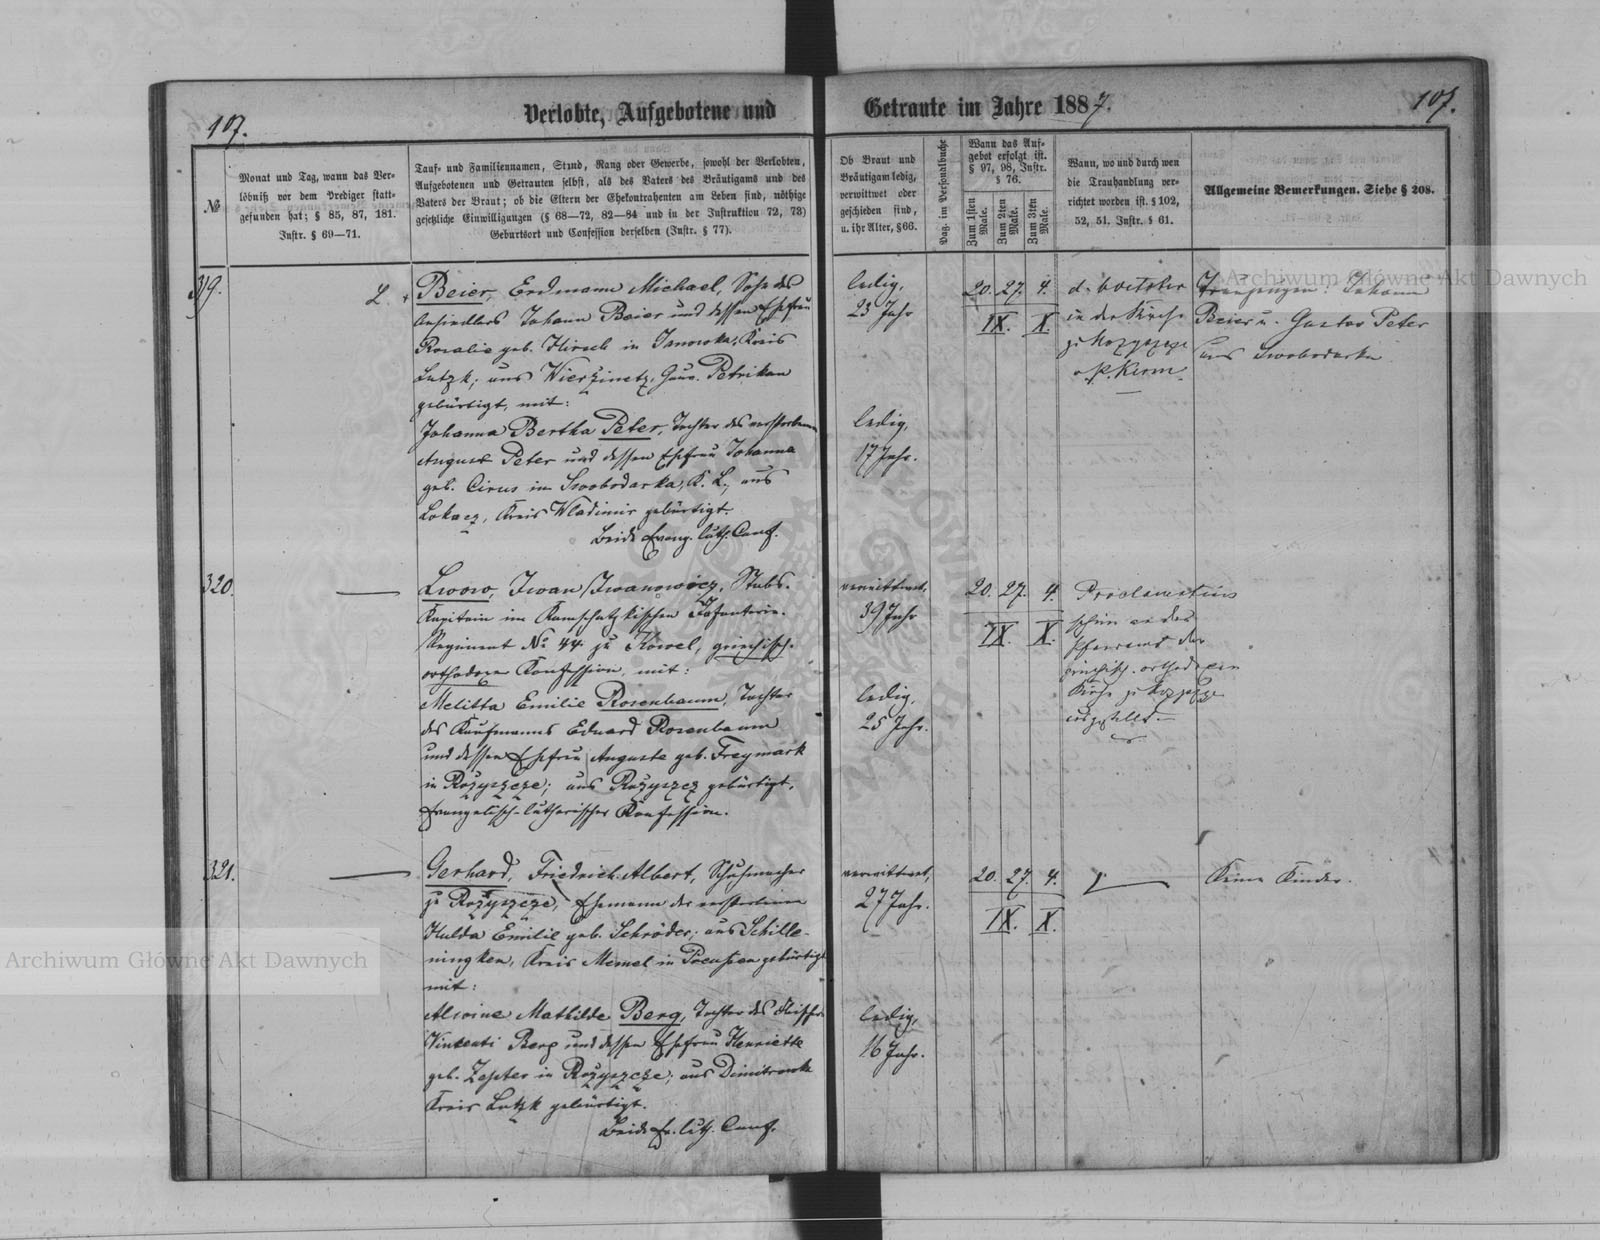 107.
Verlobte, Aufgebotene und
Getraute im Jahre 1887.
107.
№
Monat und Tag, wann das Ver-
löbniß vor dem Prediger statt-
gefunden hat; § 85, 87, 181.
Instr. § 69—71.
Tauf- und Familiennamen, Stand, Rang oder Gewerbe, sowohl der Verlobten,
Aufgebotenen und Getrauten selbst, als des Vaters des Bräutigams und des
Vaters der Braut; ob die Eltern der Ehekontrahenten am Leben sind, nöthige
gesetzliche Einwilligungen (§ 68—72, 82—84 und in der Instruktion 72, 73)
Geburtsort und Confession derselben (Instr. § 77).
Ob Braut und
Bräutigam ledig,
verwittwet oder
geschieden sind,
u. ihr Alter, § 66.
Pag. im Personalbuche
Wann das Auf-
gebot erfolgt ist.
§ 97, 98, Instr.
§ 76.
Zum 1sten Male.
Zum 2ten Male.
Zum 3ten Male.
Wann, wo und durch wen
die Trauhandlung ver-
richtet worden ist. § 102,
52, 51. Instr. § 61.
Allgemeine Bemerkungen. Siehe § 208.
319.
L.
Beier, Erdmann Michael, Sohn des
Ansiedlers Johann Beier und dessen Ehefrau
Rosalie geb. Hirsch in Janowka, Kreis
Lutzk; aus Wierzinetz, Gouv. Petrikau
gebürtigt, mit:
Johanna Bertha Peter, Tochter des verstorbenen
August Peter und dessen Ehefrau Johanna
geb. Cirus in Swobodarka, K. L., aus
Lokacz, Kreis Wladimir gebürtigt.
Beide Evang. luth. Conf.
ledig,
23 Jahr
ledig,
17 Jahr.
20. 27. 4.
IX. X.
in der Kirche
zu Rozyszcze
P. Kerm
Trauzeugen: Johann
Beier u. Gustav Peter
aus Swobodarka
320.
Lwow, Iwan Iwanowicz, Stabs-
Kapitain im Kamschatzkischen Infanterie-
Regiment № 44. zu Kowel, griechisch-
orthodoxer Konfession, mit:
Melitta Emilie Rosenbaum, Tochter
des Kaufmanns Eduard Rosenbaum
und dessen Ehefrau Auguste geb. Freymark
in Rozyszcze; aus Rozyszcz gebürtigt,
Evangelisch-lutherischer Konfession.
verwittwet,
39 Jahr
ledig,
25 Jahr.
20. 27. 4.
IX. X.
Proclamations
schein an das
Pfarramt der
griechisch-orthodoxen
Kirche zu Rozyszcze
ausgestellt.
321.
Gerhard, Friedrich Albert, Schuhmacher
zu Rozyszcze, Ehemann der verstorbenen
Hulda Emilie geb. Schröder; aus Schille-
ningken, Kreis Memel in Preussen gebürtigt
mit:
Alwine Mathilde Berg, Tochter des Tischlers
Vinzenti Berg und dessen Ehefrau Henriette
geb. Zepter in Rozyszcze; aus Dimitrowka
Kreis Lutzk gebürtigt.
Beide Ev. luth. Conf.
verwittwet,
27 Jahr.
ledig,
16 Jahr.
20. 27. 4.
IX. X.
Keine Kinder.
Archiwum Główne Akt Dawnych
Archiwum Główne Akt Dawnych